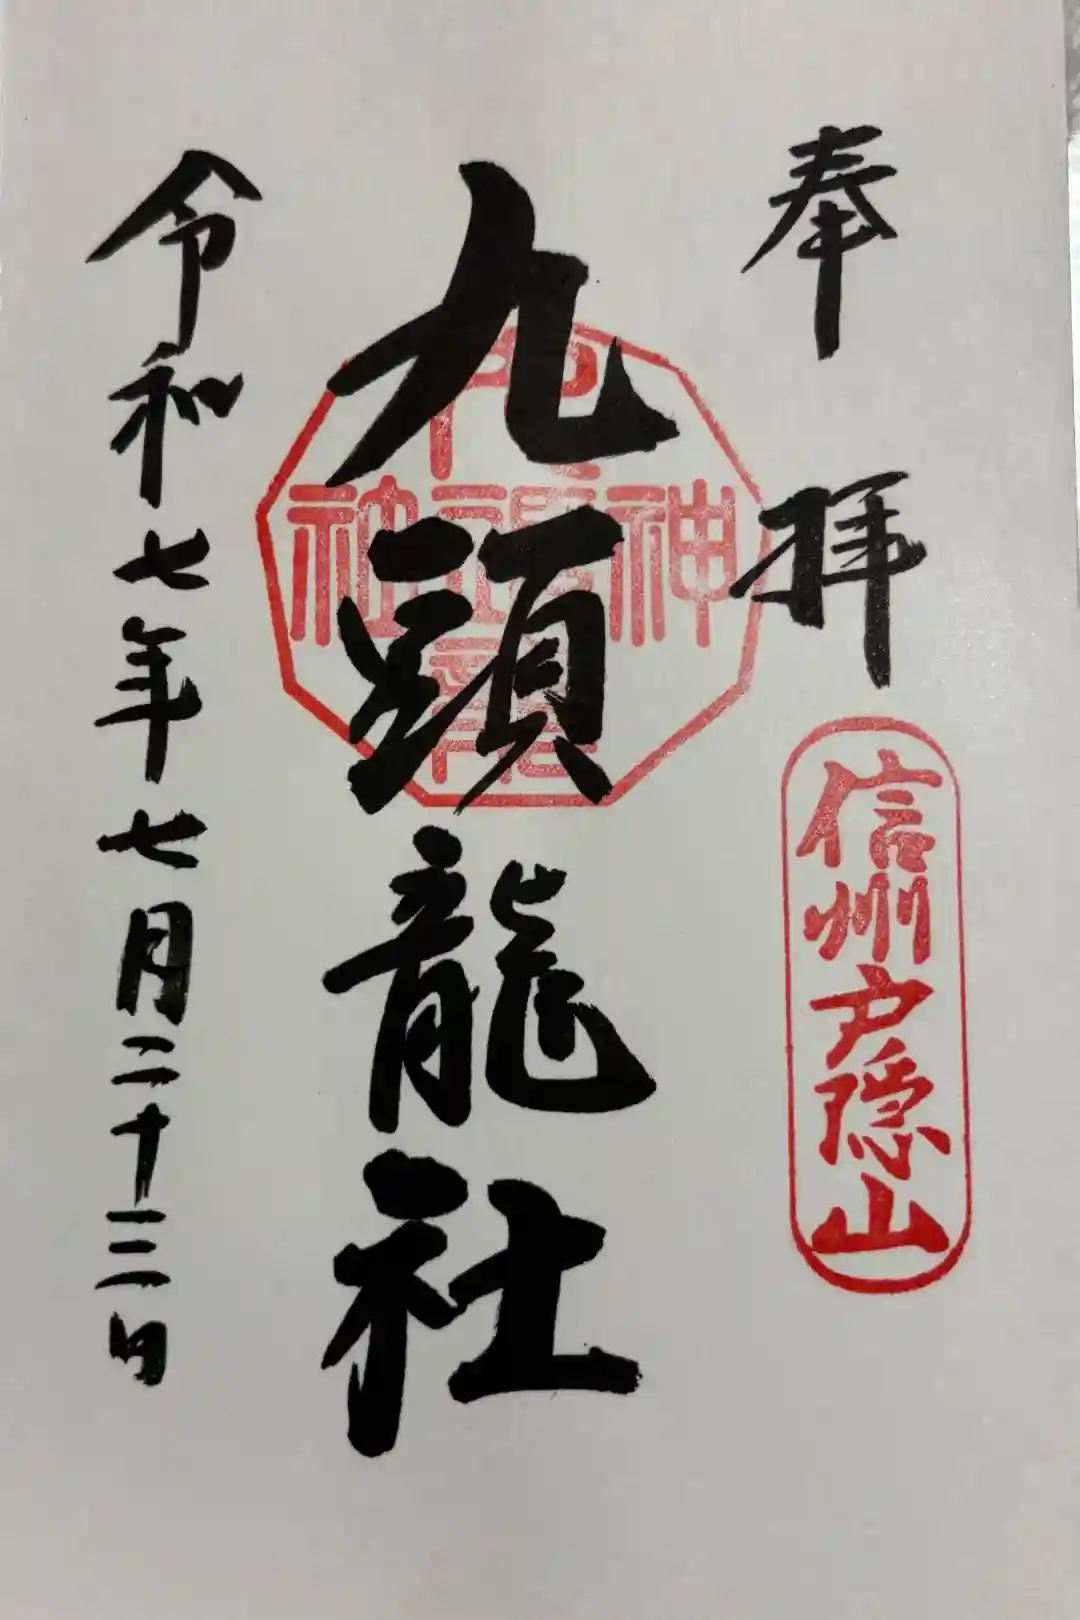 奉拝
信州戸隠山
九頭龍社
令和七年七月二十三日